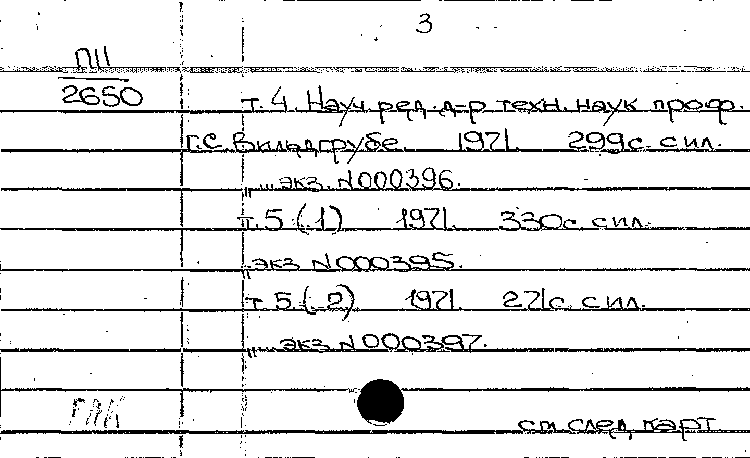 3
П11
2650
т. 4. Науч. ред. д-р техн. наук проф.
Г.С. Вильдгрубе. 1971. 299с. с ил.
„ ... экз. N000396.
т. 5 (1) 1971. 330с. с ил.
„ экз. N000395.
т. 5 (2) 1971. 271с. с ил.
„ ... экз. N000397.
см. след. карт